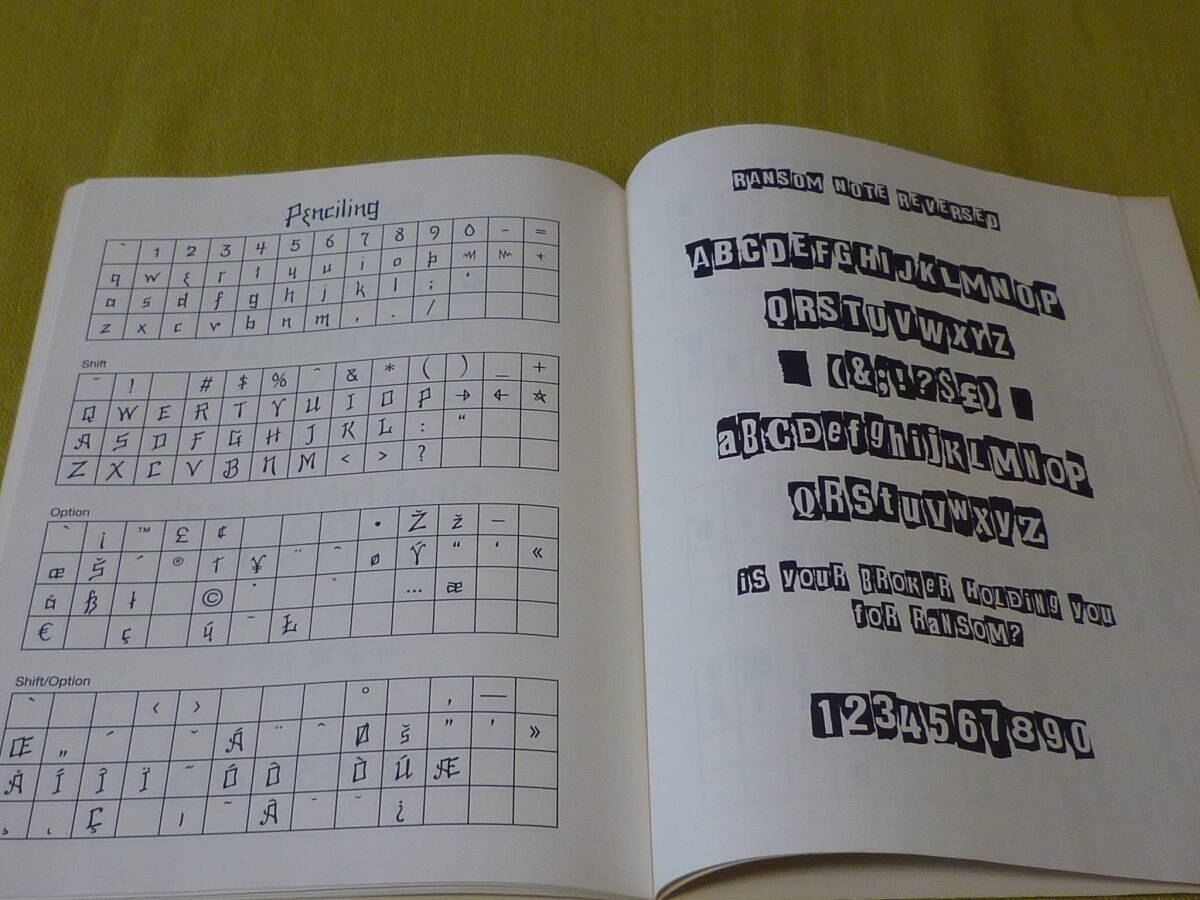 Penciling
` 1 2 3 4 5 6 7 8 9 0 - =
q w e r t y u i o p
a s d f g h j k l ; '
z x c v b n m , . /
Shift
~ ! # $ % ^ & * ( ) _ +
Q W E R T Y U I O P
A S D F G H J K L : "
Z X C V B N M < > ?
Option
` ¡ ™ £ ¢ • Ž ž –
œ Š ´ ® † ¥ ¨ ˆ ø Ý “ ‘ «
å ß ł © ˙ ˚ … æ
€ ç ý ˜ Ł
Shift/Option
` ‹ › ° , —
Œ „ ´ ˇ Á ¨ ˆ Ø š ” ’ »
Å Í Î Ï ˜ Ó Ô Ò Ú Æ
¸ ˛ Ç ı ˜ Â ¯ ˘ ¿
RANSOM NOTE REVERSED
ABCDEFGHIJKLMNOP
QRSTUVWXYZ
(&;!?$£)
aBCDefghijKLMNOP
QRStuVwxyZ
is youR BROKER HOLDing you
foR RaNSOM?
1234567890